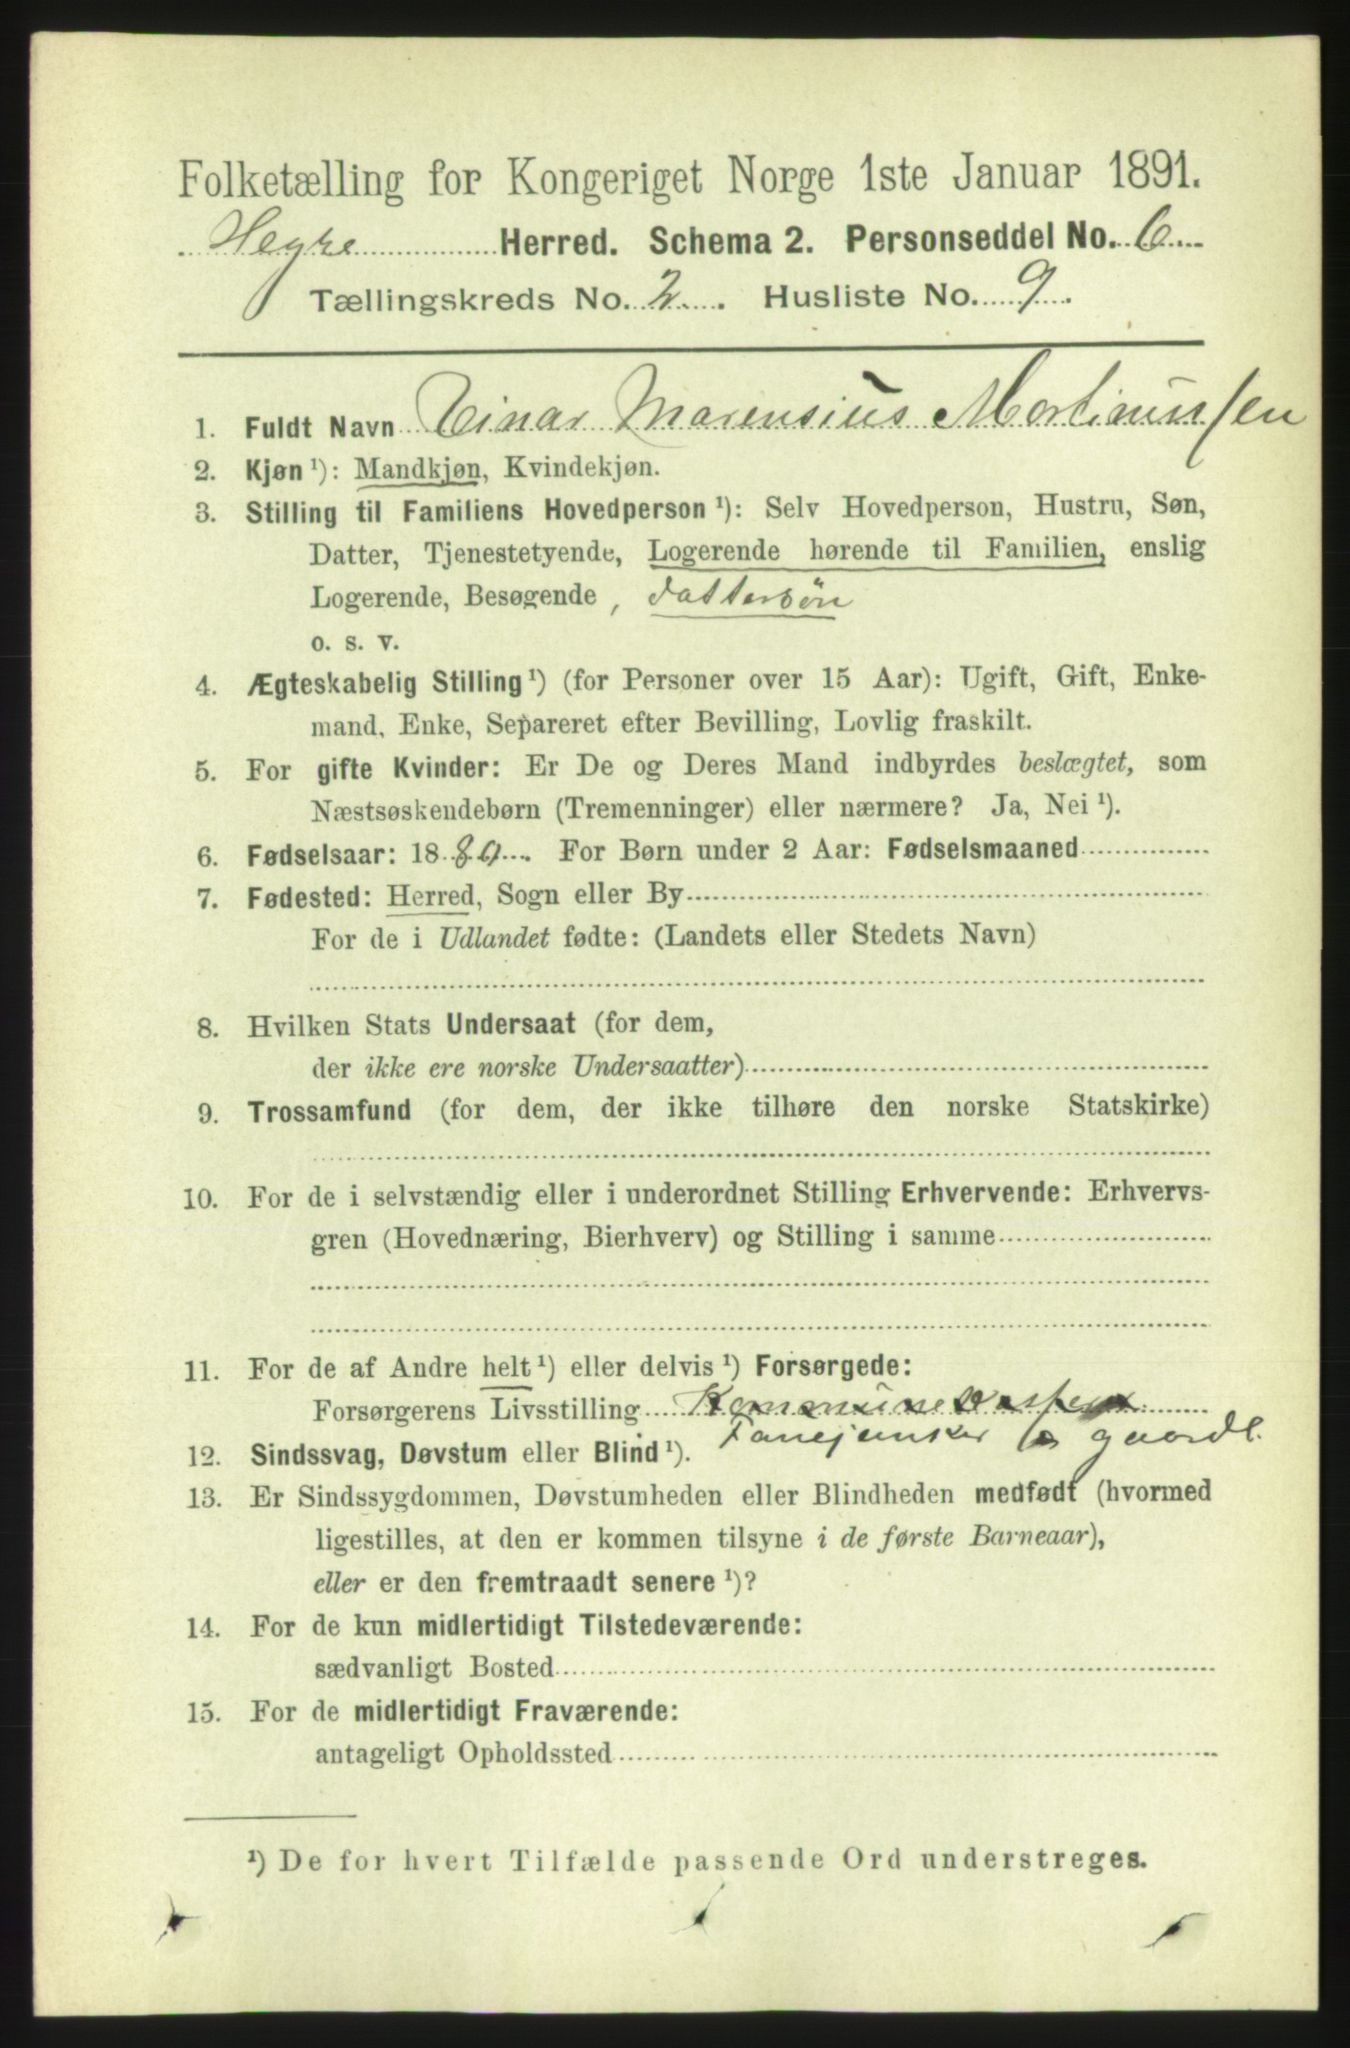 Folketælling for Kongeriget Norge 1ste Januar 1891.
Hegre Herred. Schema 2. Personseddel No. 6
Tællingskreds No. 2. Husliste No. 9.
1. Fuldt Navn Einar Marensius Martinussen
2. Kjøn ¹): Mandkjøn, Kvindekjøn.
3. Stilling til Familiens Hovedperson ¹): Selv Hovedperson, Hustru, Søn,
Datter, Tjenestetyende, Logerende hørende til Familien, enslig
Logerende, Besøgende, dattersön
o. s. v.
4. Ægteskabelig Stilling ¹) (for Personer over 15 Aar): Ugift, Gift, Enke-
mand, Enke, Separeret efter Bevilling, Lovlig fraskilt.
5. For gifte Kvinder: Er De og Deres Mand indbyrdes beslægtet, som
Næstsøskendebørn (Tremenninger) eller nærmere? Ja, Nei ¹).
6. Fødselsaar: 1889. For Børn under 2 Aar: Fødselsmaaned
7. Fødested: Herred, Sogn eller By
For de i Udlandet fødte: (Landets eller Stedets Navn)
8. Hvilken Stats Undersaat (for dem,
der ikke ere norske Undersaatter)
9. Trossamfund (for dem, der ikke tilhøre den norske Statskirke)
10. For de i selvstændig eller i underordnet Stilling Erhvervende: Erhvervs-
gren (Hovednæring, Bierhverv) og Stilling i samme
11. For de af Andre helt ¹) eller delvis ¹) Forsørgede:
Forsørgerens Livsstilling
Fanejunker & gaardb.
12. Sindssvag, Døvstum eller Blind ¹).
13. Er Sindssygdommen, Døvstumheden eller Blindheden medfødt (hvormed
ligestilles, at den er kommen tilsyne i de første Barneaar),
eller er den fremtraadt senere ¹)?
14. For de kun midlertidigt Tilstedeværende:
sædvanligt Bosted
15. For de midlertidigt Fraværende:
antageligt Opholdssted
¹) De for hvert Tilfælde passende Ord understreges.